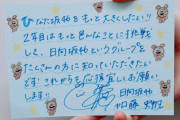 ひなた坂46をもっと大きくしたい!!
2年目はもっと色んなことに挑戦
して、日向坂46というグループを
たくさんの方に知っていただきたい
です!これからも応援宜しくお願い
します!!
日向坂46